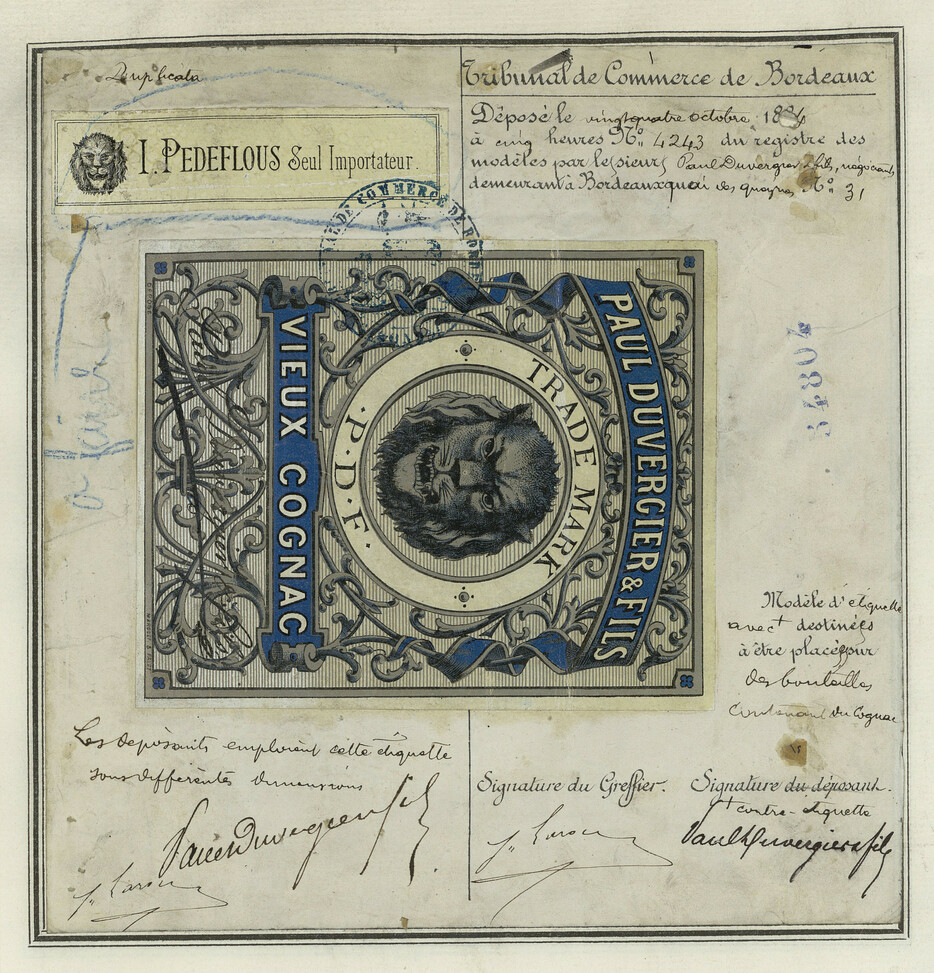 Duplicata
Tribunal de Commerce de Bordeaux
Déposé le vingtquatre octobre 1884
à cinq heures No. 4243 du registre des
modèles par les sieurs Paul Duvergier & fils, négociants
demeurant à Bordeaux quai des
No. 31
I. PEDEFLOUS Seul Importateur.
DE COMMERCE DE BORD
PAUL DUVERGIER & FILS
TRADE MARK
· P · D · F ·
VIEUX COGNAC
34804
Modèle d'étiquette
avec + destinées
à être placées sur
des bouteilles
contenant du Cognac
Les déposants emploient cette étiquette
sous différentes dimensions
Paul Duvergier & fils
Signature du Greffier.
Signature du déposant.
+ contre-étiquette
Paul Duvergier & fils